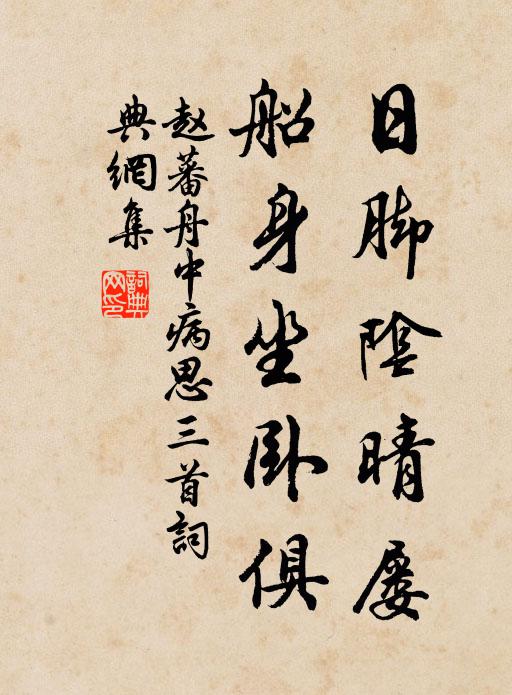 日脚陰晴屡
船身坐卧俱
赵蕃舟中病思三首詞
典網集
詞典网印